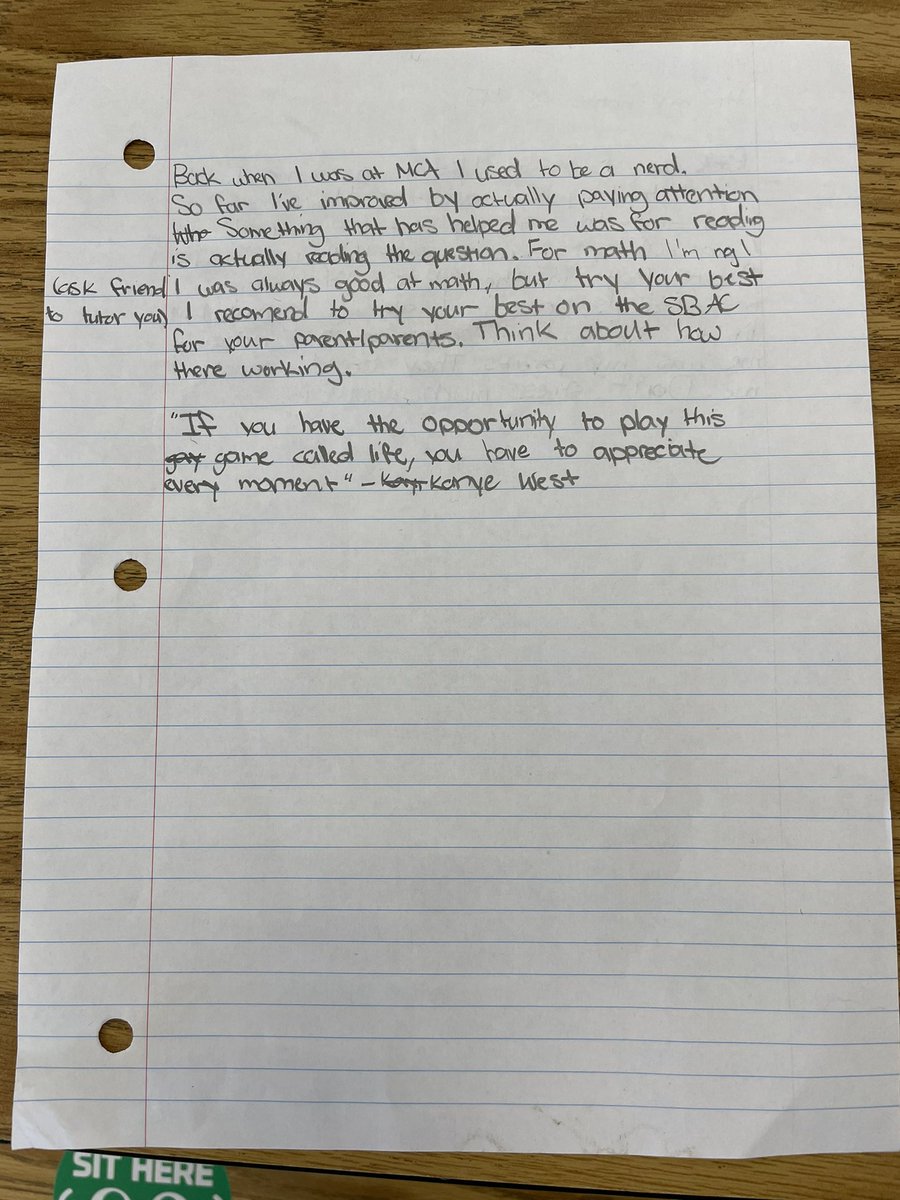 Back when I was at MCA I used to be a nerd.
So far I've improved by actually paying attention
Something that has helped me was for reading
is actually reading the question. For math I'm ngl
(ask friend I was always good at math, but try your best
to tutor you) I recomend to try your best on the SBAC
for your parent/parents. Think about how
there working.
"If you have the opportunity to play this
game called life, you have to appreciate
every moment" - Kanye West
SIT HERE